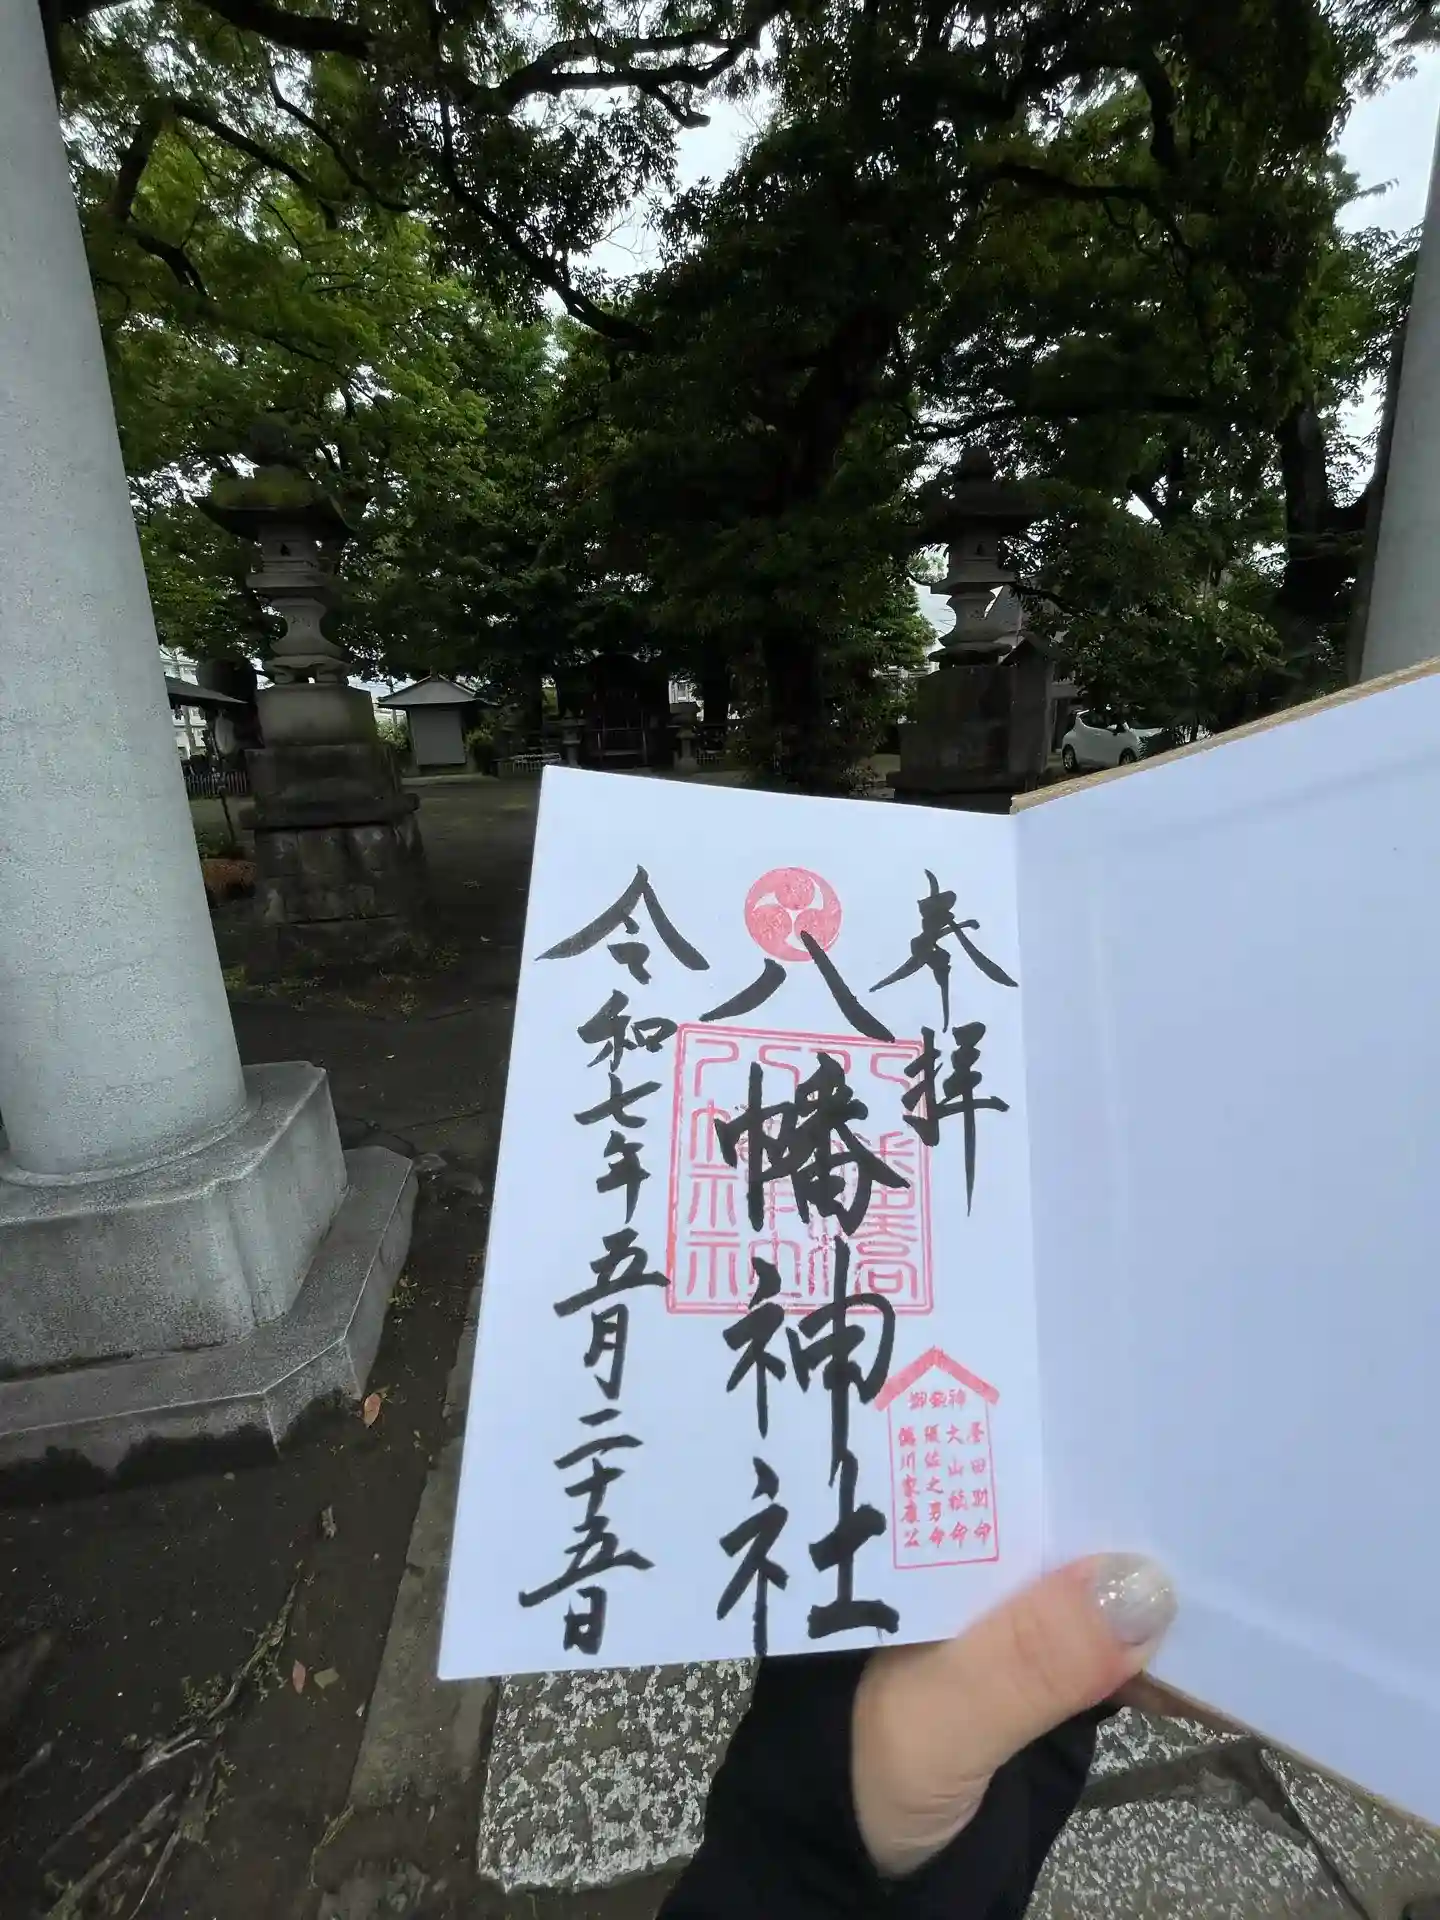 奉拝
八幡神社
令和七年五月二十五日
御祭神
誉田別命
大山祇命
須佐之男命
徳川家康公